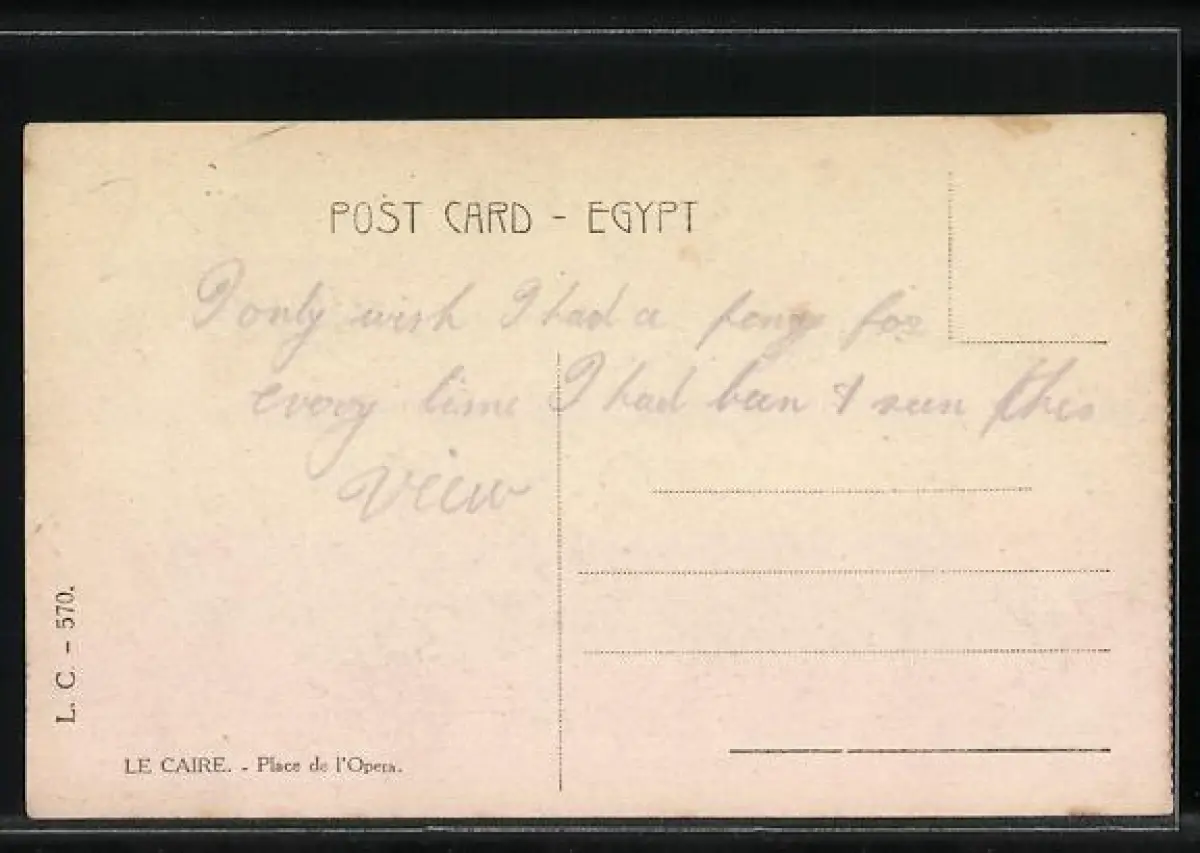 POST CARD - EGYPT
I only wish I had a for
every time I had been & seen this
view
L. C. - 570.
LE CAIRE. - Place de l'Opera.